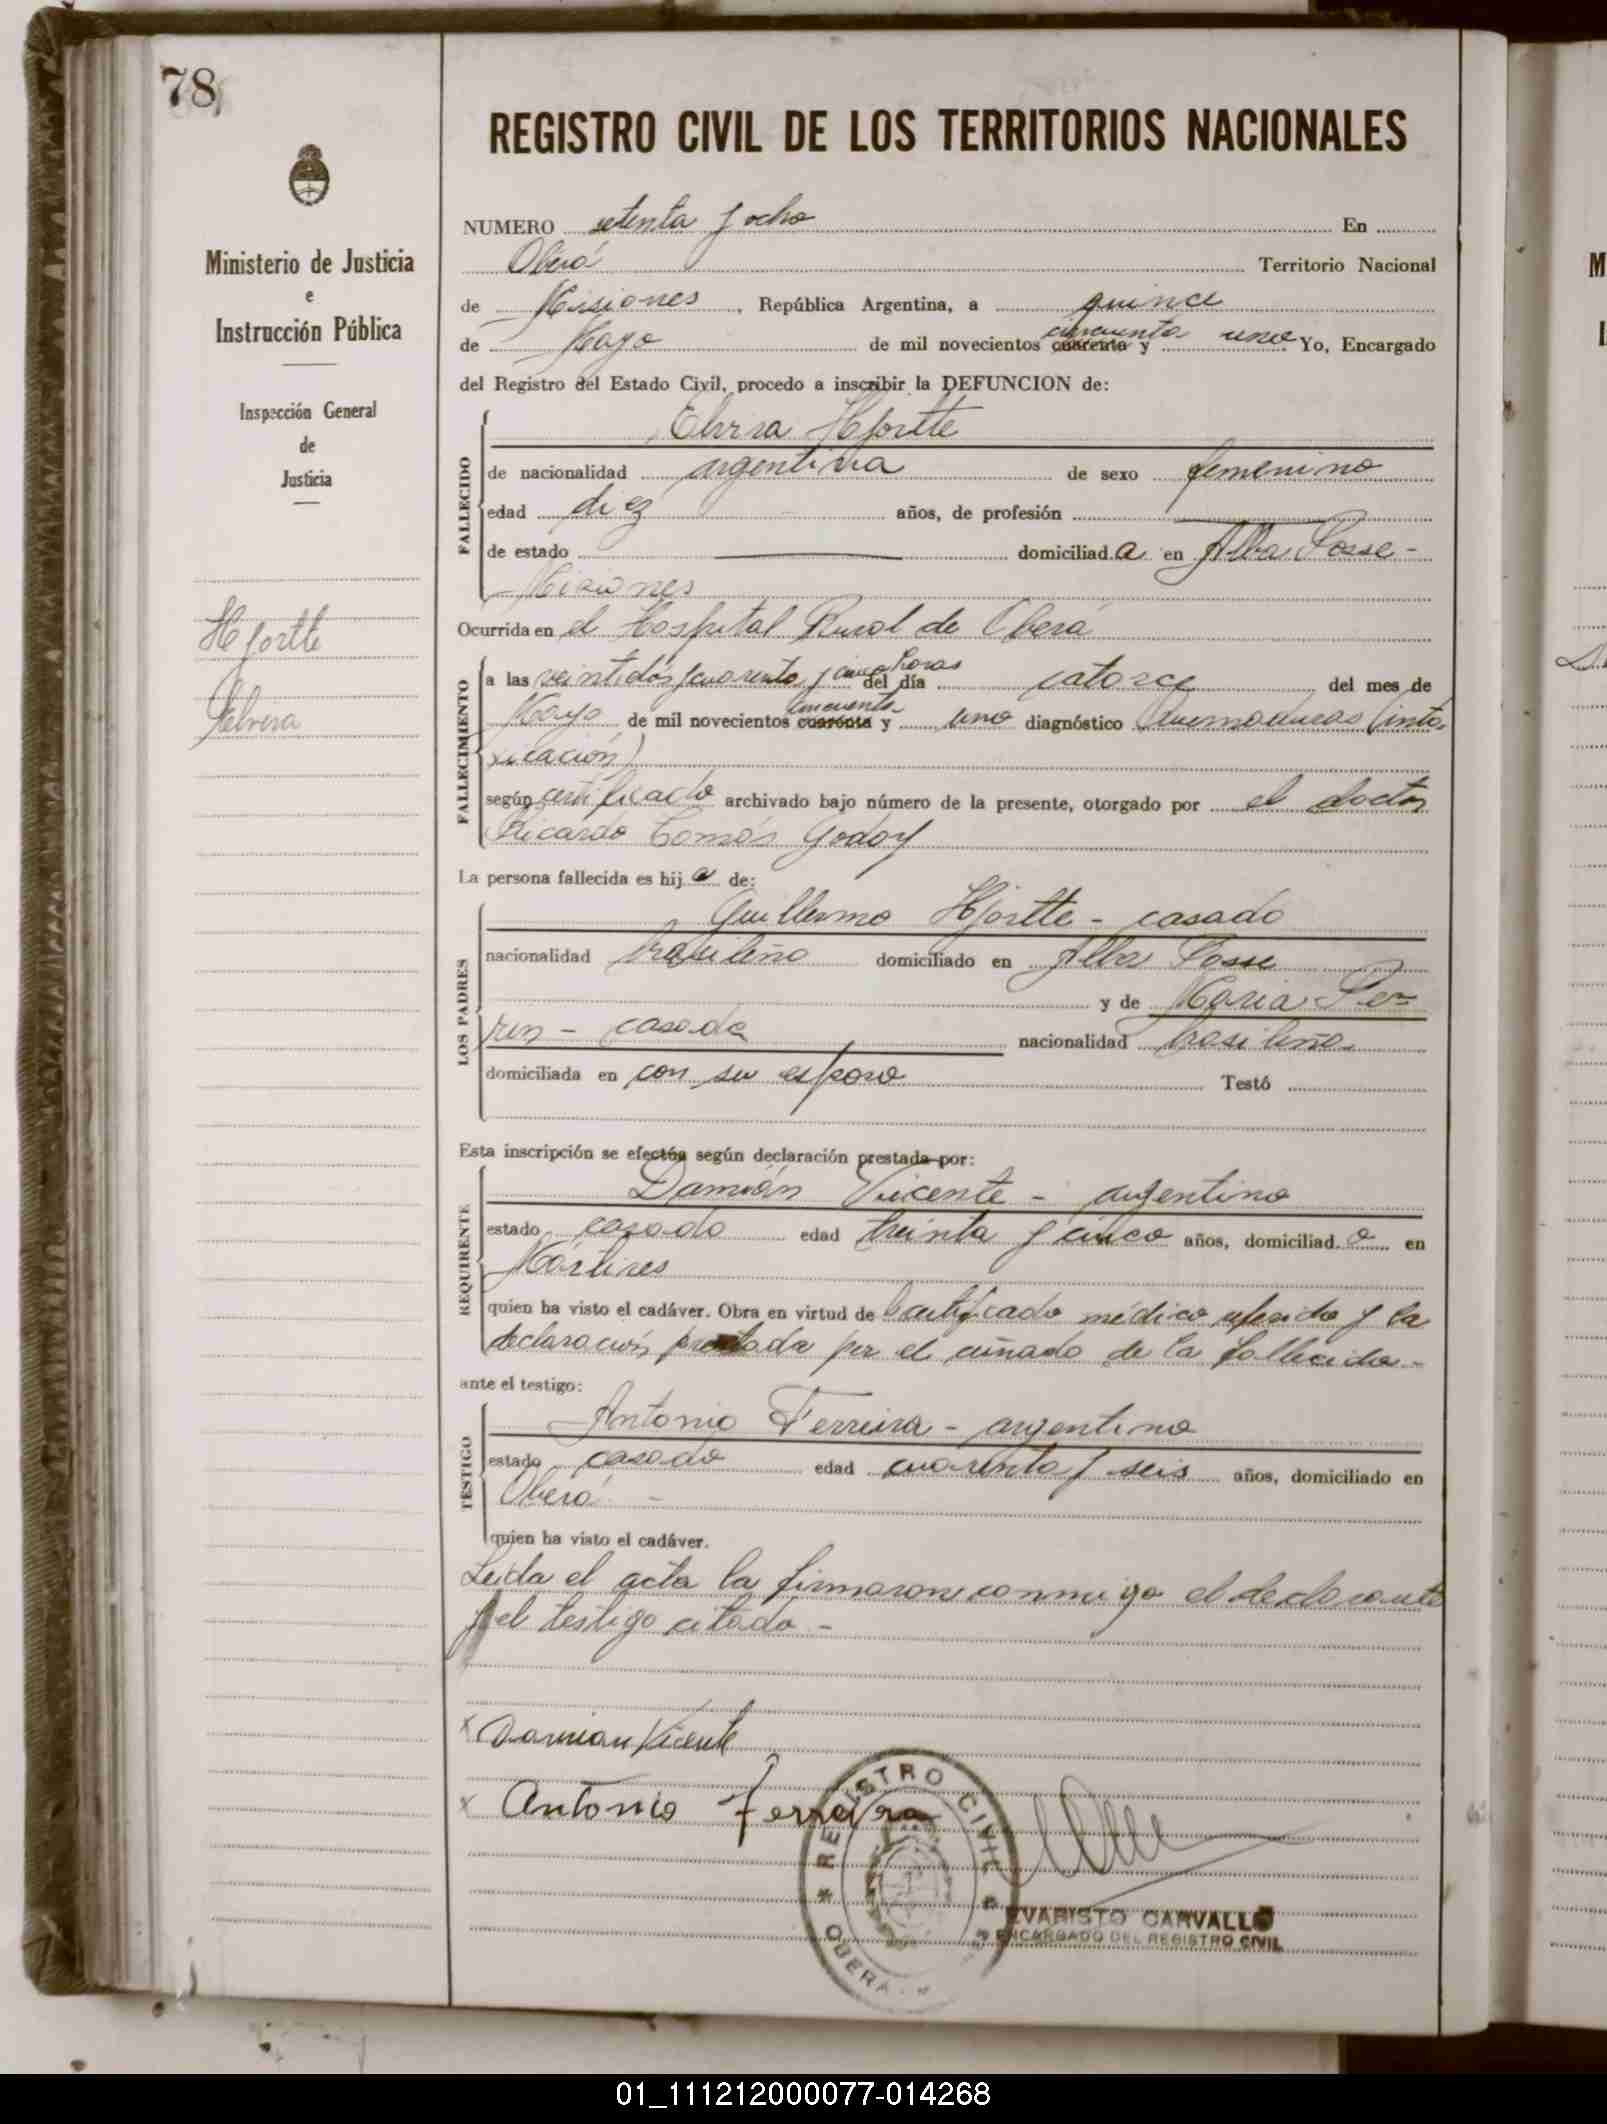 78
REGISTRO CIVIL DE LOS TERRITORIOS NACIONALES
Ministerio de Justicia
e
Instrucción Pública
Inspección General
de
Justicia
Hjortte
Elvira
NUMERO setenta y ocho En
Oberá Territorio Nacional
de Misiones, República Argentina, a quince
de Mayo de mil novecientos cuarenta cincuenta y uno Yo, Encargado
del Registro del Estado Civil, procedo a inscribir la DEFUNCION de:
FALLECIDO
Elvira Hjortte
de nacionalidad argentina de sexo femenino
edad diez años, de profesión
de estado domiciliada en Alba Posse-
Misiones
Ocurrida en el Hospital Rural de Oberá
FALLECIMIENTO
a las veintidós y cuarenta y cinco horas del día catorce del mes de
Mayo de mil novecientos cuarenta cincuenta y uno diagnóstico Quemaduras (into-
xicación)
según certificado archivado bajo número de la presente, otorgado por el doctor
Ricardo Tomás Godoy
La persona fallecida es hija de:
LOS PADRES
Guillermo Hjortte - casado
nacionalidad brasileño domiciliado en Alba Posse
y de Maria
casada nacionalidad brasileña
domiciliada en con su esposo Testó
Esta inscripción se efectúa según declaración prestada por:
REQUIRENTE
Damián Vicente - argentino
estado casado edad treinta y cinco años, domiciliado en
Mártires
quien ha visto el cadáver. Obra en virtud de certificado médico referido y la
declaración prestada por el cuñado de la fallecida-
ante el testigo:
TESTIGO
Antonio Ferreira - argentino
estado casado edad cuarenta y seis años, domiciliado en
Oberá -
quien ha visto el cadáver.
Leida el acta la firmaron conmigo el declarante
y el testigo citado -
x Damian Vicente
x Antonio Ferreira
REGISTRO CIVIL
OBERA
EVARISTO CARVALLO
ENCARGADO DEL REGISTRO CIVIL
01_111212000077-014268